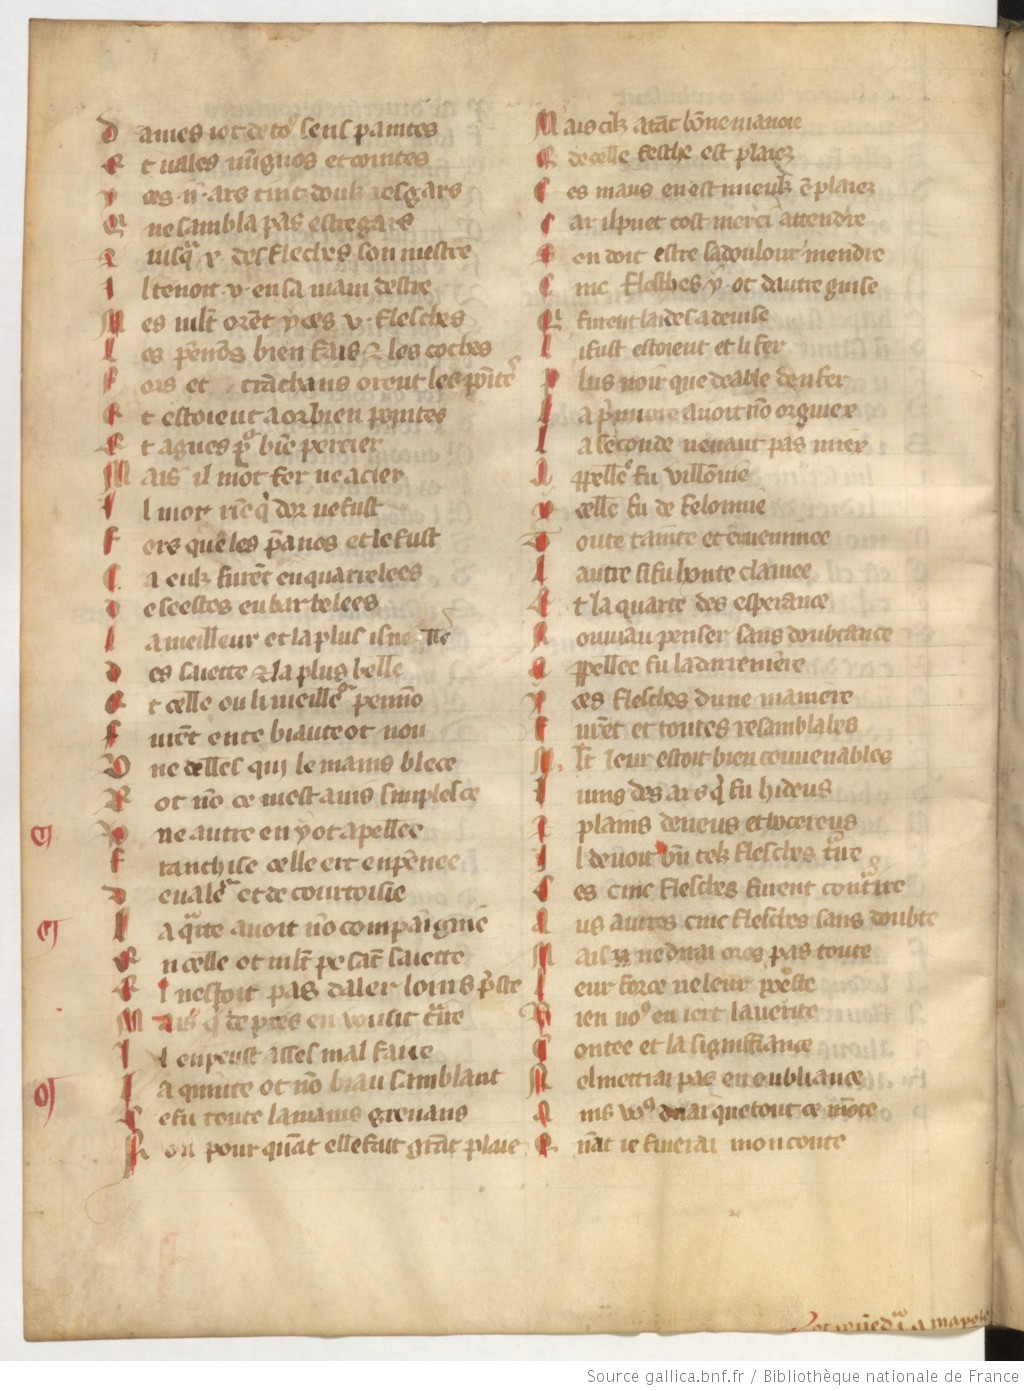 D ames i ot de to9 sens paintes
E t uales uingnos et cointes
y ces .ii. ars tint douz resgars
Q ne sambla pas estre gars
I usq .x. des fleches son mestre
I l tenoit .v. en sa main destre
M es mlt orent yces .v. flesches
L es penons bien fais & les coches
F ors et trachans orent les pointes
E t estoient a or bien pointes
E t agues por bien percier
M ais il niot fer ne acier
I l niot rien qi dor ne fust
F ors que les panons et le fust
C a euls furent enquarrelees
D e seestes en barbelees
L a meilleur et la plus isnele
D es saiette & la plus belle
E t celle ou li meilleur pennon
F urent ente biaute ot non
V ne delles qui le mains blece
R ot non ce mest auis simplesce
V ne autre en y ot apellee
F ranchise celle ert enpenee
D e ualeur et de courtoisie
L a quarte auoit non compaignie
E n celle et mlt pesant saiette
E l nestoit pas daler loins preste
M ais qi de pres en vousist traire
I l en peust asses mal faire
L a quinte ot non biau samblant
C e fu toute la mains greuans
N on pour quant elle fait grant plaie
M ais cilz atant bonne manoie
Q de celle flesche est plaiez
S es maus en est mieulz emplaiez
C ar il puet tost merci attendre
S en doit estre sa doulour mendre
C inc flesches y ot dautre guise
Q furent laides a deuise
L i fust estoient et li fer
P lus noir que deable denfer
L a premiere auoit non orguiex
L a seconde ne uaut pas miex
A ppellee fu villonnie
I celle fu de felonnie
T oute tainte et enuenimee
L autre si fu honte clamee
E t la quarte desesperance
N ouuiau penser sans doubtance
A ppellee fu la darreniere
Y ces flesches dune maniere
F urent et toutes resamblables
M lt leur estoit bien conuenables
L uns des ars qi fu hideus
E t plains de neus et bocereus
I l deuoit bien telz flesches traire
C es cinc flesches furent contraire
A us autres cinc flesches sans doubte
M ais ne dirai ores pas toute
L eur force ne leur poeste
B ien uo9 en iert la uerite
C ontee et la signifiance
N el mettrai pas en oubliance
A ins vo9 dirai que tout ce monte
E incat ie finerai mon conte